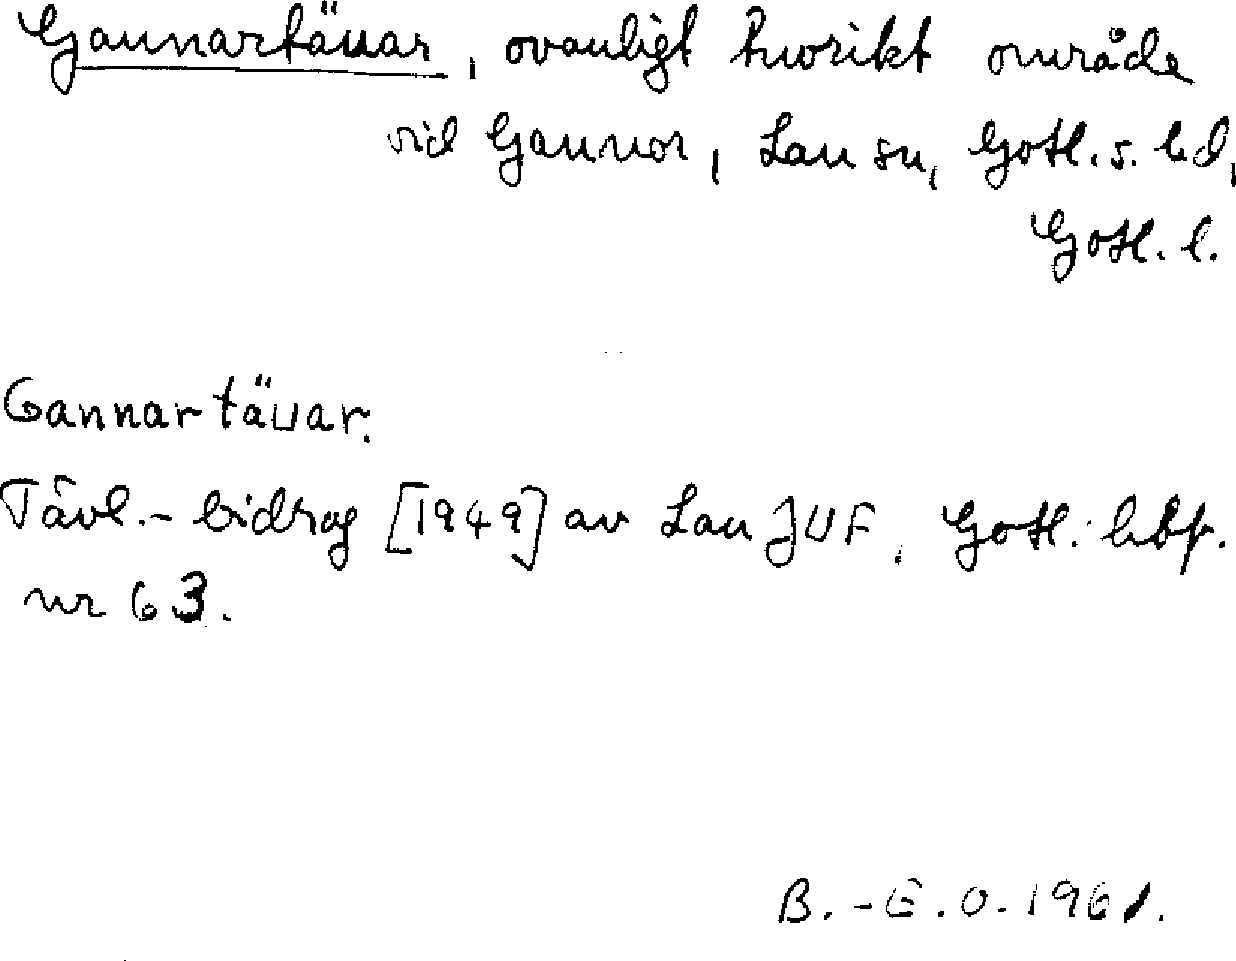 Gannartäuar, ovanligt tuorikt område
vid Gannor, Lau sn, Gotl. s. hd,
Gotl. l.
Gannartäuar.
Tävl.-bidrag [1949] av Lau JUF. Gotl. hbf.
nr 63.
B.-E.O. 1961.